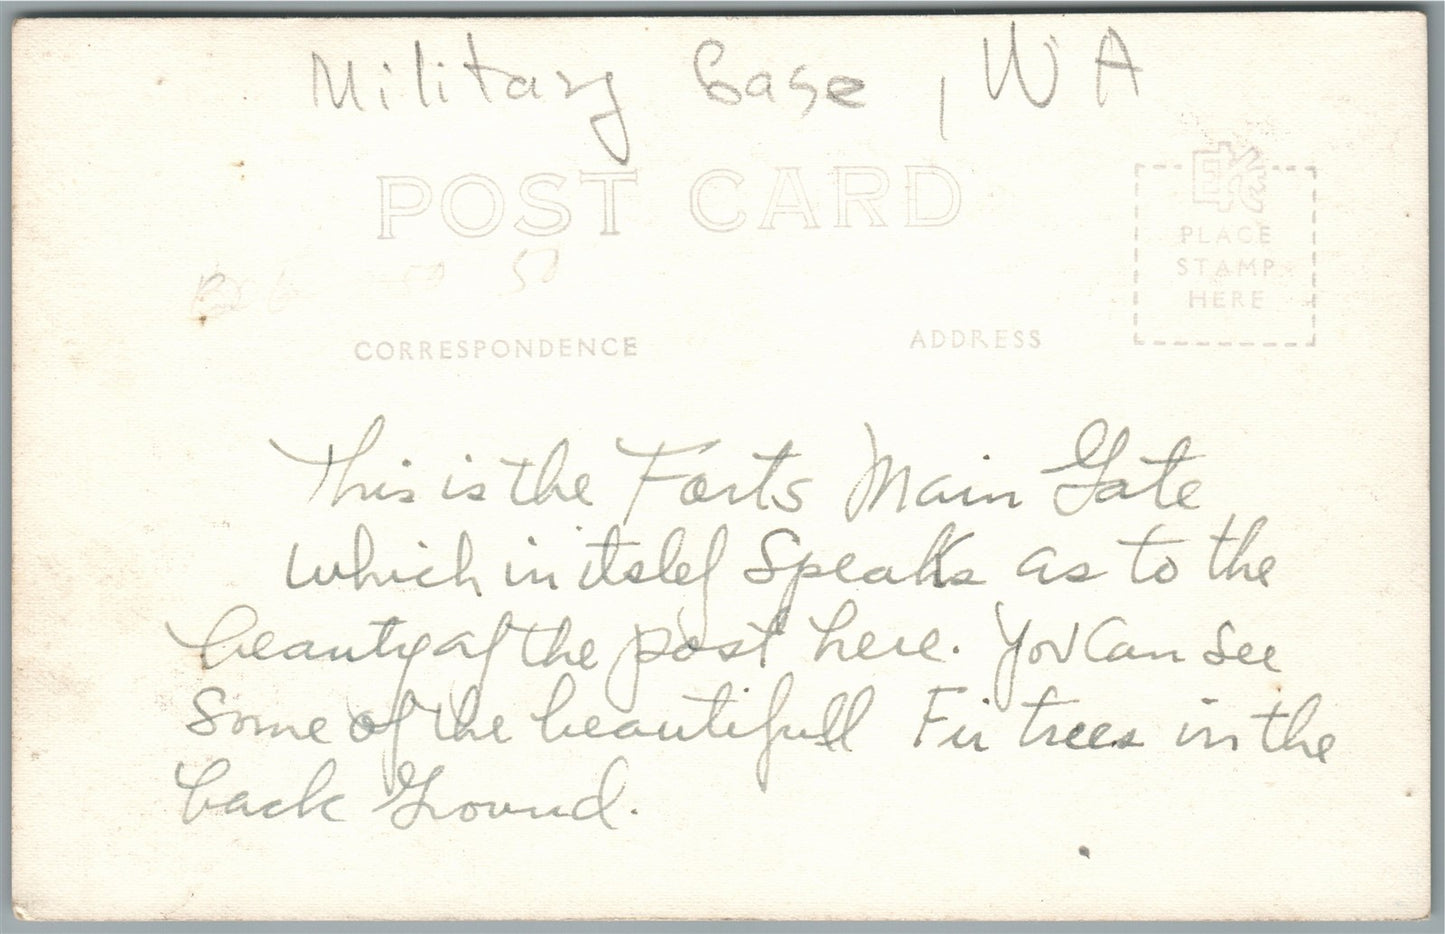 Military base, WA
POST CARD
EK
PLACE
STAMP
HERE
50 50
CORRESPONDENCE
ADDRESS
This is the Forts Main Gate
which in itslef Speaks as to the
beauty of the post here. You Can See
Some of the beautifull Fir trees in the
back Ground.